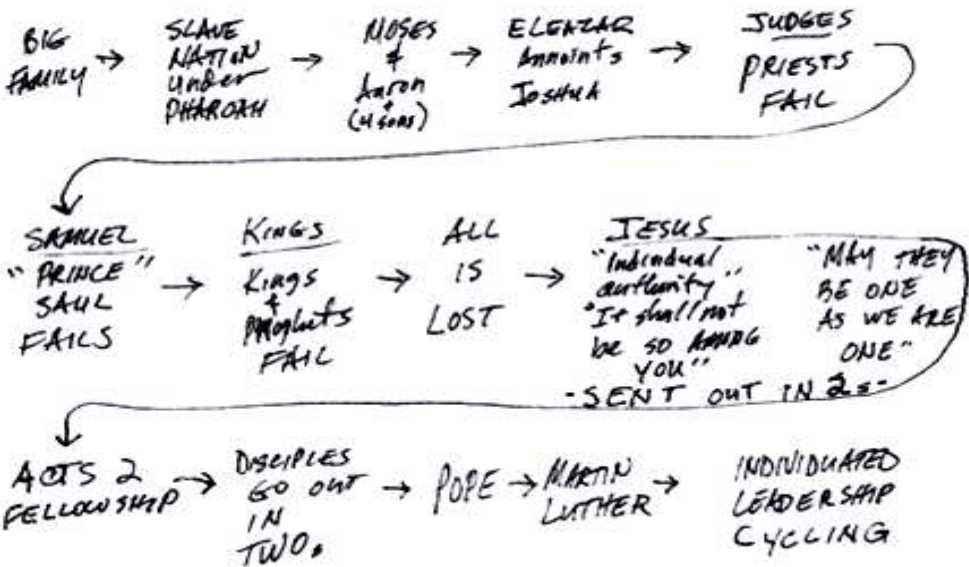 BIG
FAMILY
SLAVE
NATION
Under
PHAROAH
MOSES
&
Aaron
(4 sons)
ELEAZAR
Annoints
Joshua
JUDGES
PRIESTS
FAIL
SAMUEL
"PRINCE"
SAUL
FAILS
KINGS
Kings
&
Prophets
FAIL
ALL
IS
LOST
JESUS
"Individual
authority"
"It shall not
be so AMONG
YOU"
"MAY THEY
BE ONE
AS WE ARE
ONE"
- SENT OUT IN 2s -
ACTS 2
FELLOWSHIP
DISCIPLES
GO OUT
IN
TWOs
POPE
MARTIN
LUTHER
INDIVIDUATED
LEADERSHIP
CYCLING